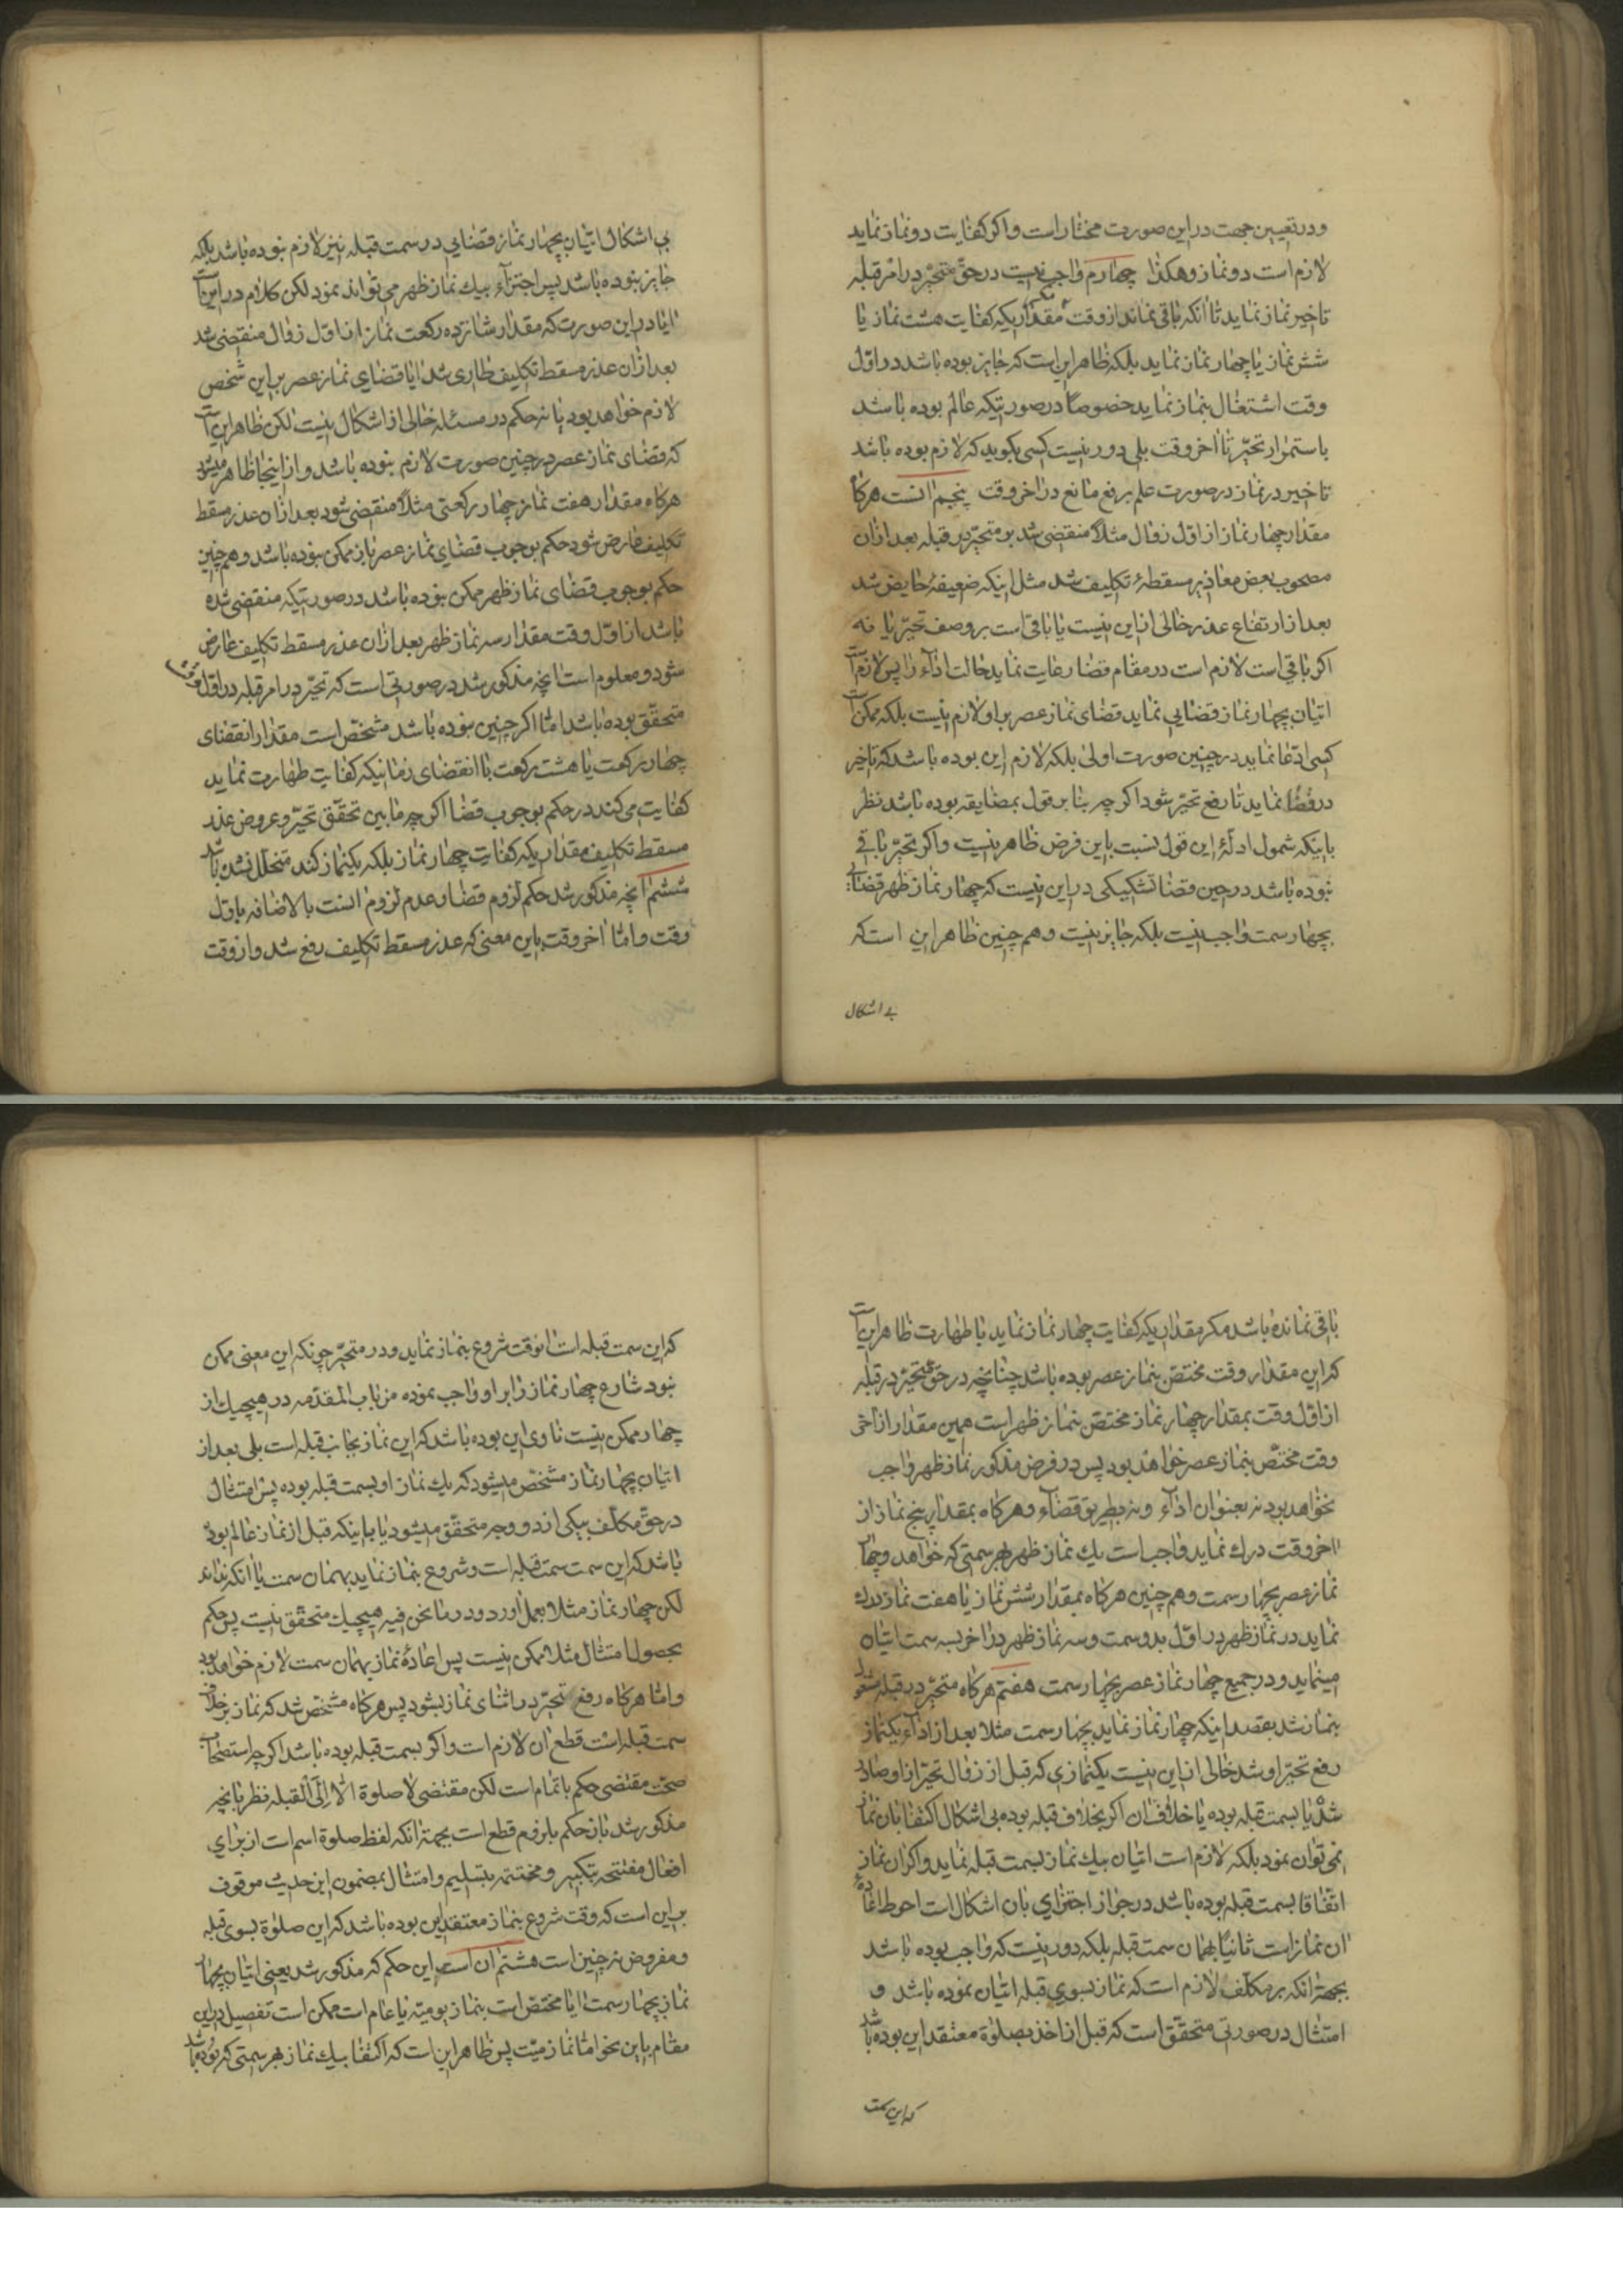 ودر تعیین جهت در این صورت مختار است واکر کفایت دو نماز نماید
لازم است دو نماز وهکذا چهارم واجب نیست در حق متحیر در امر قبله
تاخیر نماز نماید تا انکه باقی نماند از وقت مکر مقداریکه کفایت هشت نماز یا
شش نماز یا چهار نماز نماید بلکه ظاهر این است که جایز بوده باشد در اول
وقت اشتغال بنماز نماید خصوصا در صورتیکه عالم بوده باشد
باستمرار تحیر تا اخر وقت بلی دور نیست کسی بکوید که لازم بوده باشد
تاخیر در نماز در صورت علم برفع مانع در اخر وقت پنجم انست هرکاه
مقدار چهار نماز از اول زوال مثلا منقضی شد بر متحیر در قبله بعد از ان
مصحوب بعض معاذیر مسقطهٔ تکلیف شد مثل اینکه ضعیفهٔ حایض شد
بعد از ارتفاع عذر خالی از این نیست یا باقی است بر وصف تحیر یا نه
اکر باقی است لازم است در مقام قضا رعایت نماید حالت اداء را پس لازم است
اتیان بچهار نماز قضایی نماید قضای نماز عصر بر او لازم نیست بلکه ممکن است
کسی ادعا نماید در چنین صورت اولی بلکه لازم این بوده باشد که تاخیر
در قضا نماید تا رفع تحیر شود اکر چه بنا بر قول بمضایقه بوده باشد نظر
باینکه شمول ادلهٔ این قول نسبت باین فرض ظاهر نیست واکر تحیر باقی
نبوده باشد در حین قضا تشکیکی در این نیست که چهار نماز ظهر قضائی
بچهار سمت واجب نیست بلکه جایز نیست وهم چنین ظاهر این است که
بی اشکال
بی اشکال اتیان بچهار نماز قضایی در سمت قبله نیز لازم نبوده باشد بلکه
جایز نبوده باشد پس اجتزاء بیك نماز ظهر می تواند نمود لکن کلام در این است
ایا در این صورت که مقدار شانزده رکعت نماز از اول زوال منقضی شد
بعد از ان عذر مسقط تکلیف طاری شد ایا قضای نماز عصر بر این شخص
لازم خواهد بود یا نه حکم در مسئله خالی از اشکال نیست لکن ظاهر این است
که قضای نماز عصر در چنین صورت لازم نبوده باشد و از اینجا ظاهر میشود
هرکاه مقدار هفت نماز چهار رکعتی مثلا منقضی شود بعد از ان عذر مسقط
تکلیف عارض شود حکم بوجوب قضای نماز عصر باز ممکن نبوده باشد وهم چنین
حکم بوجوب قضای نماز ظهر ممکن نبوده باشد در صورتیکه منقضی شده
باشد از اول وقت مقدار سه نماز ظهر بعد از ان عذر مسقط تکلیف عارض
شود ومعلوم است انچه مذکور شد در صورتی است که تحیر در امر قبله در اول وقت
متحقق بوده باشد اما اکر چنین نبوده باشد مشخص است مقدار انقضای
چهار رکعت یا هشت رکعت با انقضای زمانیکه کفایت طهارت نماید
کفایت می کند در حکم بوجوب قضا اکر چه مابین تحقق تحیر و عروض عذر
مسقط تکلیف مقداریکه کفایت چهار نماز بلکه یکنماز کند متخلل نشده باشد
ششم انچه مذکور شد حکم لزوم قضا وعدم لزوم انست بالاضافه باول
وقت واما اخر وقت باین معنی که عذر مسقط تکلیف رفع شد واز وقت
باقی نمانده باشد مکر مقداریکه کفایت چهار نماز نماید با طهارت ظاهر این است
که این مقدار وقت مختص بنماز عصر بوده باشد چنانچه در حق متحیر در قبله
از اول وقت بمقدار چهار نماز مختص بنماز ظهر است همین مقدار از اخر
وقت مختص بنماز عصر خواهد بود پس در فرض مذکور نماز ظهر واجب
نخواهد بود نه بعنوان اداء ونه بطریق قضاء وهرکاه بمقدار پنج نماز از
اخر وقت درك نماید واجب است یك نماز ظهر بهر سمتی که خواهد وچهار
نماز عصر بچهار سمت وهم چنین هرکاه بمقدار شش نماز یا هفت نماز درك
نماید در نماز ظهر در اول بدو سمت وسه نماز ظهر در اخر بسه سمت اتیان
مینماید ودر جمیع چهار نماز عصر بچهار سمت هفتم هرکاه متحیر در قبله مشغول
بنماز شد بقصد اینکه چهار نماز نماید بچهار سمت مثلا بعد از اداء یکنماز
رفع تحیر او شد خالی از این نیست یکنمازی که قبل از زوال تحیر از او صادر
شد یا بسمت قبله بوده یا خلاف ان اکر بخلاف قبله بوده بی اشکال اکتفا بان نماز
نمی توان نمود بلکه لازم است اتیان بیك نماز بسمت قبله نماید واکر ان نماز
اتفاقا بسمت قبله بوده باشد در جواز اجتزای بان اشکال است احوط اعاده
ان نماز است ثانیا بهمان سمت قبله بلکه دور نیست که واجب بوده باشد
بجهة انکه بر مکلف لازم است که نماز بسوی قبله اتیان نموده باشد و
امتثال در صورتی متحقق است که قبل از اخذ بصلوة معتقد این بوده باشد
که این سمت
که این سمت قبله است انوقت شروع بنماز نماید ودر متحیر چونکه این معنی ممکن
نبود شارع چهار نماز را بر او واجب نموده من باب المقدمه در هیچیك از
چهار ممکن نیست ناوی این بوده باشد که این نماز بجانب قبله است بلی بعد از
اتیان بچهار نماز مشخص میشود که یك نماز او بسمت قبله بوده پس امتثال
در حق مکلف بیکی از دو وجه متحقق میشود یا باینکه قبل از نماز عالم بوده
باشد که این سمت سمت قبله است وشروع بنماز نماید بهمان سمت یا انکه نداند
لکن چهار نماز مثلا بعمل اورد ودر ما نحن فیه هیچیك متحقق نیست پس حکم
بحصول امتثال مثلا ممکن نیست پس اعادهٔ نماز بهمان سمت لازم خواهد بود
واما هرکاه رفع تحیر در اثنای نماز بشود پس هرکاه مشخص شد که نماز بر خلاف
سمت قبله است قطع ان لازم است واکر بسمت قبله بوده باشد اکر چه استصحاب
صحت مقتضی حکم باتمام است لکن مقتضی لا صلوة الا الی القبله نظر بانچه
مذکور شد باز حکم بلزوم قطع است بجهة انکه لفظ صلوة اسم است از برای
افعال مفتتحه بتکبیر ومختتمه بتسلیم وامتثال بمضمون این حدیث موقوف
بر این است که وقت شروع بنماز معتقد این بوده باشد که این صلوة بسوی قبله
ومفروض نه چنین است هشتم ان است این حکم که مذکور شد یعنی اتیان بچهار
نماز بچهار سمت ایا مختص است بنماز یومیه یا عام است ممکن است تفصیل در این
مقام باین نحو اما نماز میت پس ظاهر این است که اکتفا بیك نماز بهر سمتی که بوده باشد